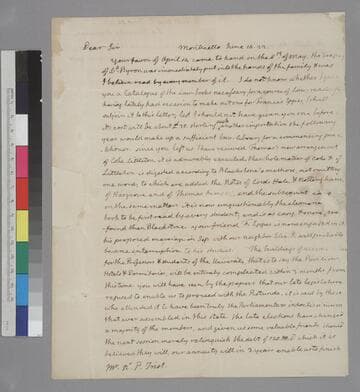 Dear Sir Monticello June 14. 22.
Your favor of April 14. came to hand on the of May. the
of Dr. Byron was immediately put into the hands of the family & was
I believe read by every member of it. I do not know whether I gave
you a Catalogue of the law books necessary for a course of law reading
having lately had occasion to make out one for Francis Eppes, I shall
subjoin it to this letter, lest I should not have given you one before
it's cost will be about £ sterling. another import in the following
year would make up a sufficient law library for a commencing prac-
titioner. since you left us I have received Thomas's new arrangement
of Coke Littleton. it is admirably executed. the whole matter of Coke &
Littleton is digested according to Blackstone's method, not omitting
one word, to which are added the Notes of Lord Hale & Nottingham
of Hargrave and of Thomas himself, and the subsequent
on the same matter. it is now unquestionably the elementary
book to be first read by every student, and is as easy & more pro-
found than Blackstone. your friend F. Eppes is now engaged in it
his proposed marriage in Sep. with our neighbor Miss R. will probably
be some interruption to his studies. The buildings of
for the Professors & students of the University, that is to say the Pavilions
Hotels & Dormitories, will be entirely compleated within 3 months from
this time. you will have seen by the papers that our late legislature
refused to enable us to proceed with the Rotunda. it is said by those
who attended it to have been truly the
that was ever assembled in this state. the late elections have changed
a majority of the members, and given us some valuable friends. should
the next session merely relinquish the debt of 120. M. D. which it is
believed they will, our annuity will in 3 years enable us to finish
Mr. N. P. Trist.